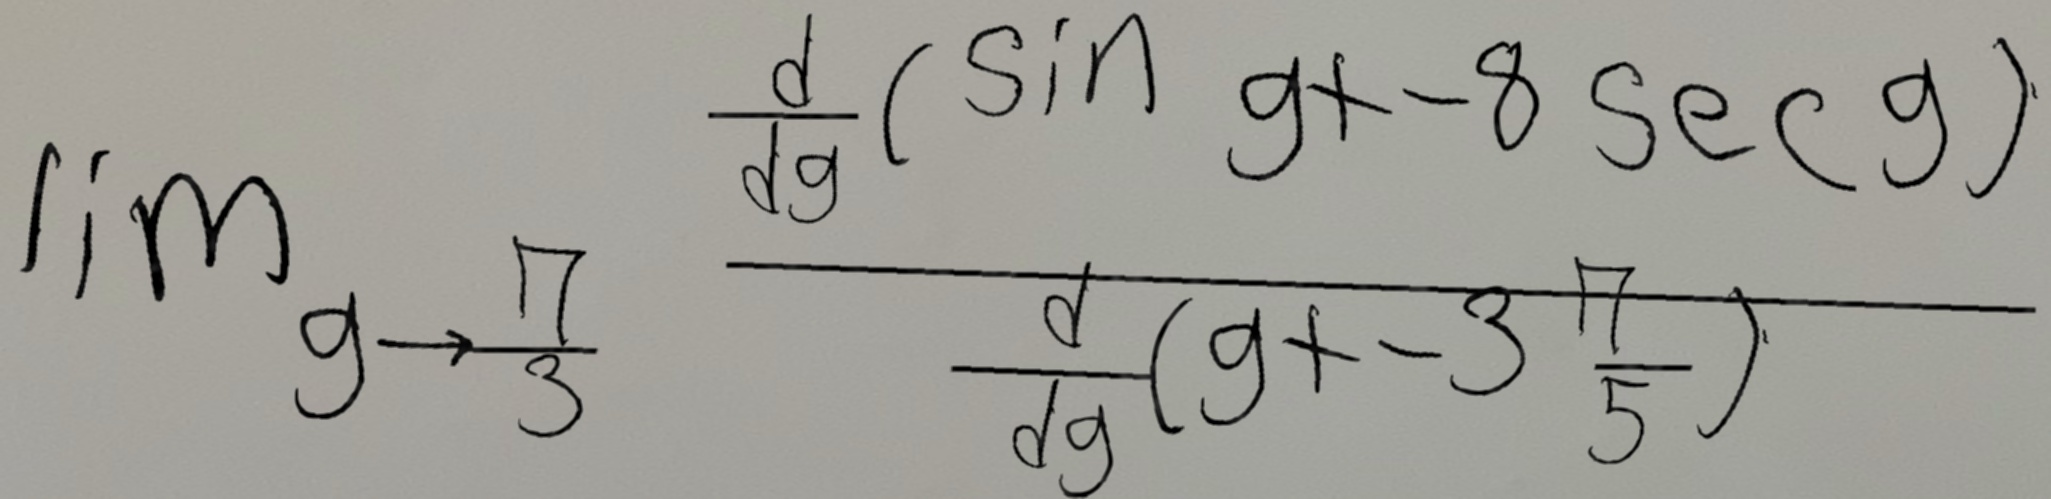 \lim_{g \to \frac{\pi}{3}} \frac{\frac{d}{dg}(\sin g + -8 \sec g)}{\frac{d}{dg}(g + -3 \frac{\pi}{5})}